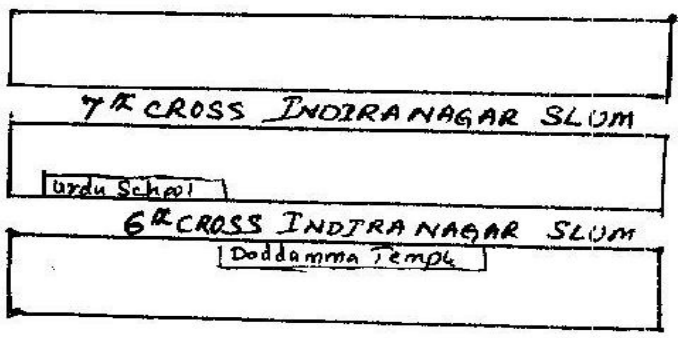 7th CROSS INDIRANAGAR SLUM
Urdu School
6th CROSS INDIRANAGAR SLUM
Doddamma Temple